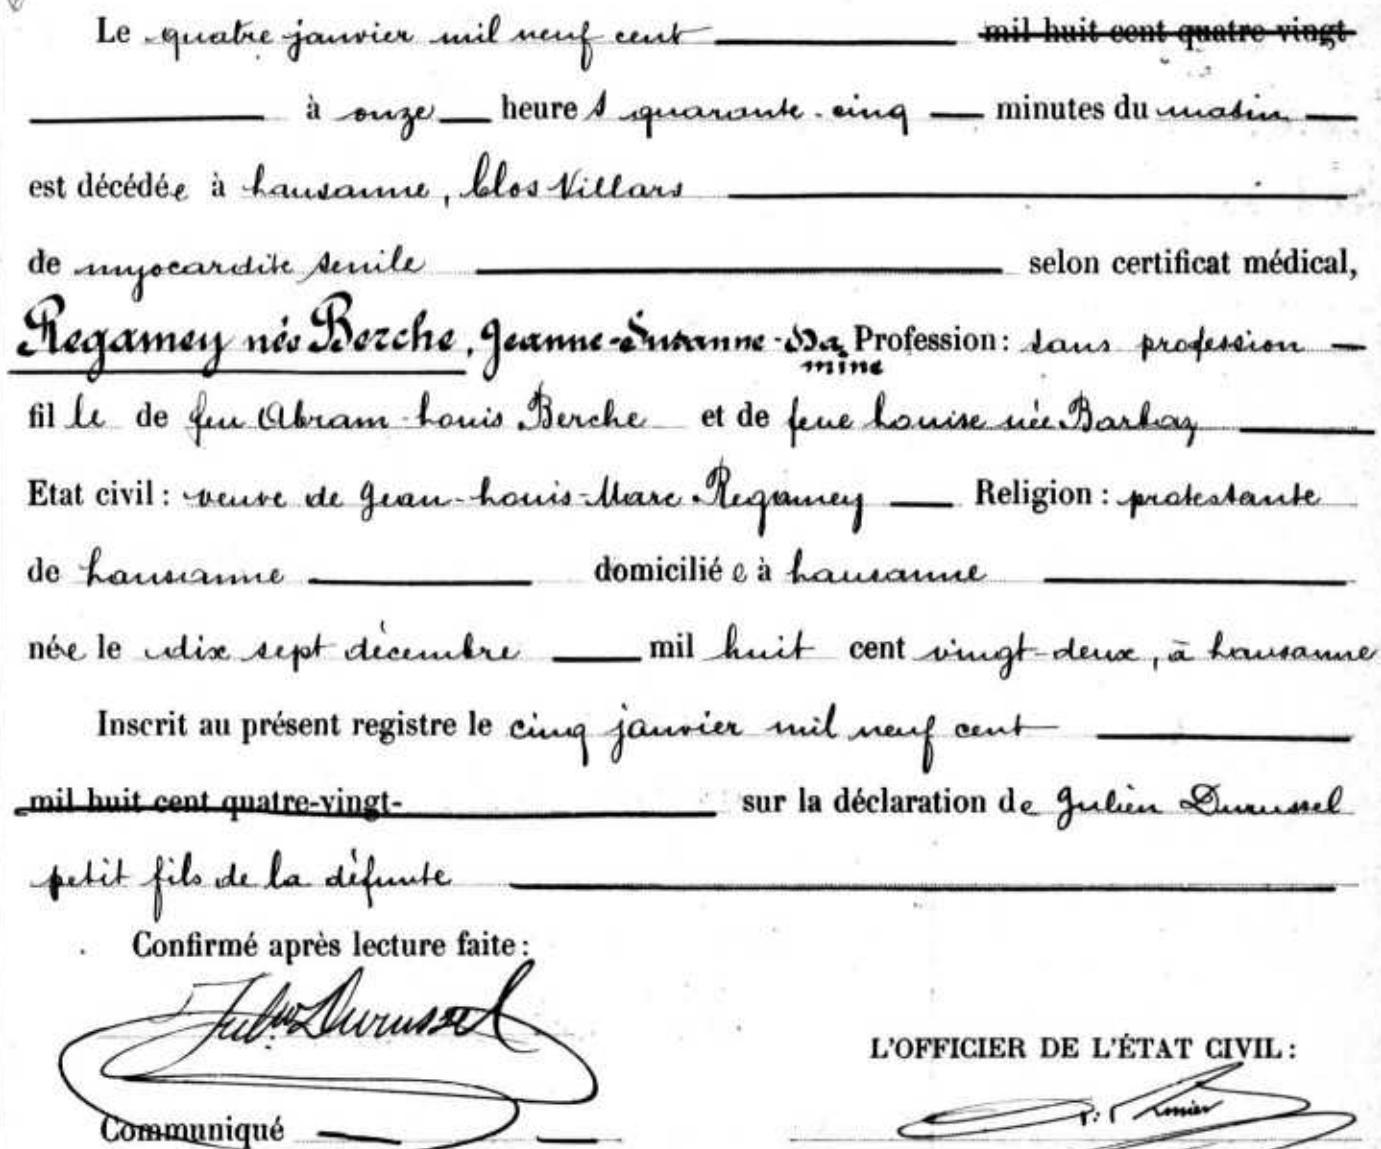 Le quatre janvier mil neuf cent mil huit cent quatre-vingt-
à onze heures quarante-cinq minutes du matin
est décédée à Lausanne, Clos Villars
de myocardite senile selon certificat médical,
Regamey née Berche, Jeanne-Suzanne- Profession: sans profession
mine
fille de feu Abram-Louis Berche et de feue Louise née Barbaz
Etat civil: veuve de Jean-Louis-Marc Regamey Religion: protestante
de Lausanne domiciliée à Lausanne
née le dix sept décembre mil huit cent vingt-deux, à Lausanne
Inscrit au présent registre le cinq janvier mil neuf cent
mil huit cent quatre-vingt- sur la déclaration de Julien Durussel
petit fils de la défunte
Confirmé après lecture faite:
Durussel
L'OFFICIER DE L'ÉTAT CIVIL:
Communiqué